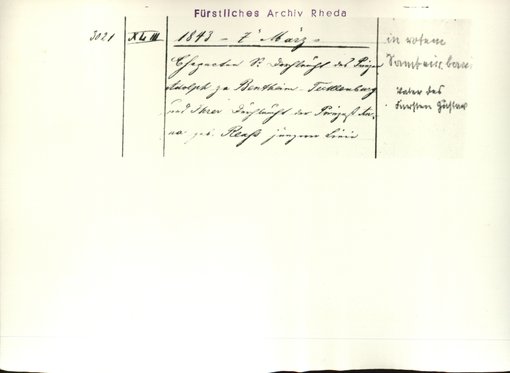 Fürstliches Archiv Rheda
3021 XLIII 1843 - 7 März.
Ehepacten Sr. Durchlaucht des Prinzen
Adolph zu Bentheim Tecklenburg
und Ihrer Durchlaucht der Prinzeß An-
na geb. Reuß jüngere Linie
in rotem
Vater des
Fürsten Gustav